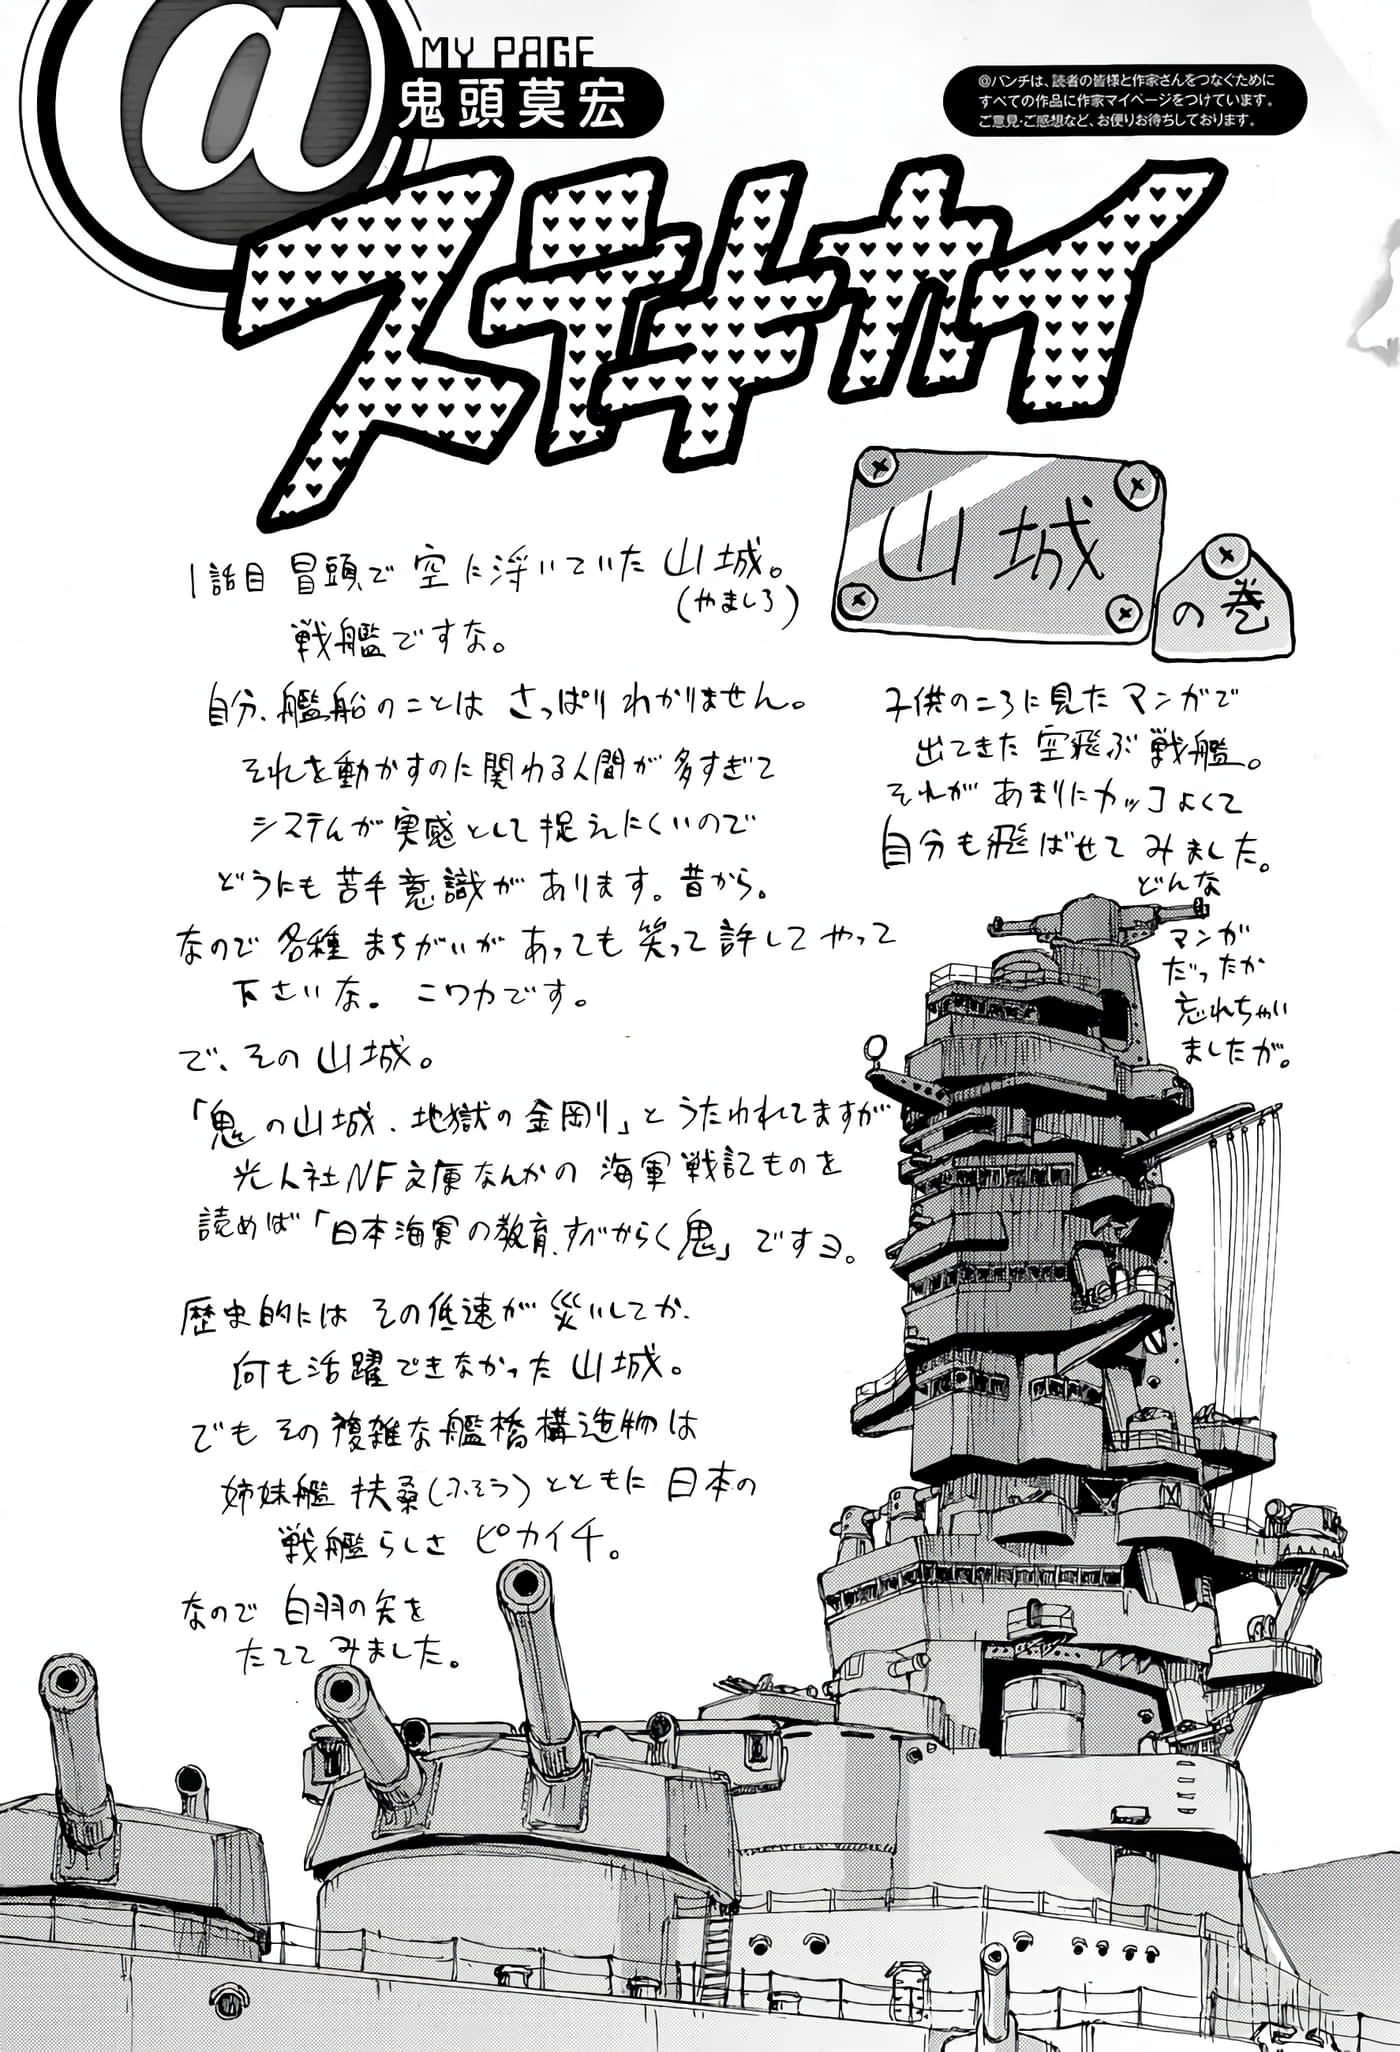 @
MY PAGE
鬼頭莫宏
@バンチは、読者の皆様と作家さんをつなぐために
すべての作品に作家マイページをつけています。
ご意見・ご感想など、お便りお待ちしております。
ステキカイ
山城
の巻
1話目 冒頭で 空に浮いていた 山城。
(やましろ)
戦艦ですな。
自分、艦船のことは さっぱりわかりません。
それを動かすのに関わる人間が多すぎて
システムが実感として捉えにくいので
どうにも苦手意識があります。昔から。
なので 各種 まちがいが あっても 笑って許してやって
下さいな。 ニワカです。
で、その山城。
「鬼の山城、地獄の金剛」とうたわれてますが
光人社NF文庫なんかの 海軍戦記ものを
読めば「日本海軍の教育、すべからく鬼」ですヨ。
歴史的には その低速が災いしてか、
何も活躍できなかった 山城。
でも その複雑な艦橋構造物は
姉妹艦 扶桑(ふそう)とともに 日本の
戦艦らしさ ピカイチ。
なので 白羽の矢を
たててみました。
子供のころに見たマンガで
出てきた 空飛ぶ 戦艦。
それが あまりにカッコよくて
自分も飛ばせて みました。
どんな
マンガ
だったか
忘れちゃい
ましたが。